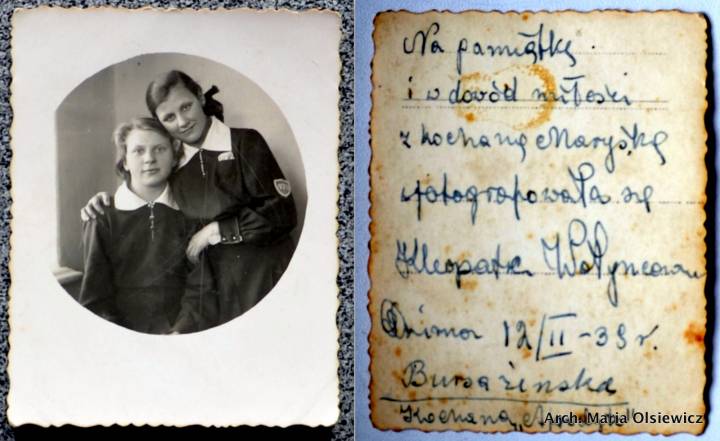 Na pamiątkę
i w dowód miłości
z kochaną Maryśką
fotografowała się
Kleopatra
12/II-39 r.
Bursa żeńska
Kochaną
Arch. Maria Olsiewicz